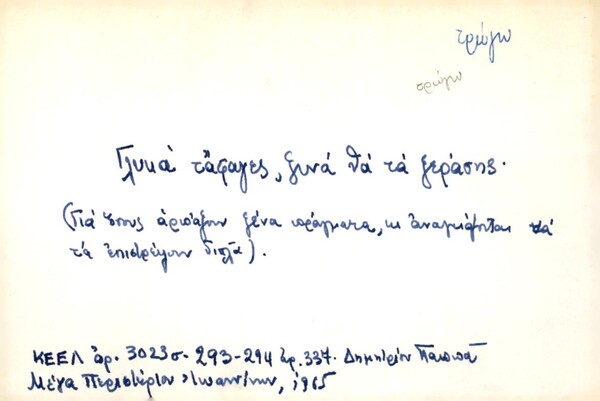 τρώγω
τρώγω
Γλυκά τἄφαγες, ξυνά θά τά ξεράσης.
(Γιά ὅσους ἁρπάζουν ξένα πράγματα, κι ἀναγκάζονται νά
τά ἐπιστρέψουν διπλᾶ).
ΚΕΕΛ ἀρ. 3023 σ. 293-294 ἀρ. 337. Δημητρίου Παππᾶ
Μέγα Περιστέριον Ἰωαννίνων, 1965